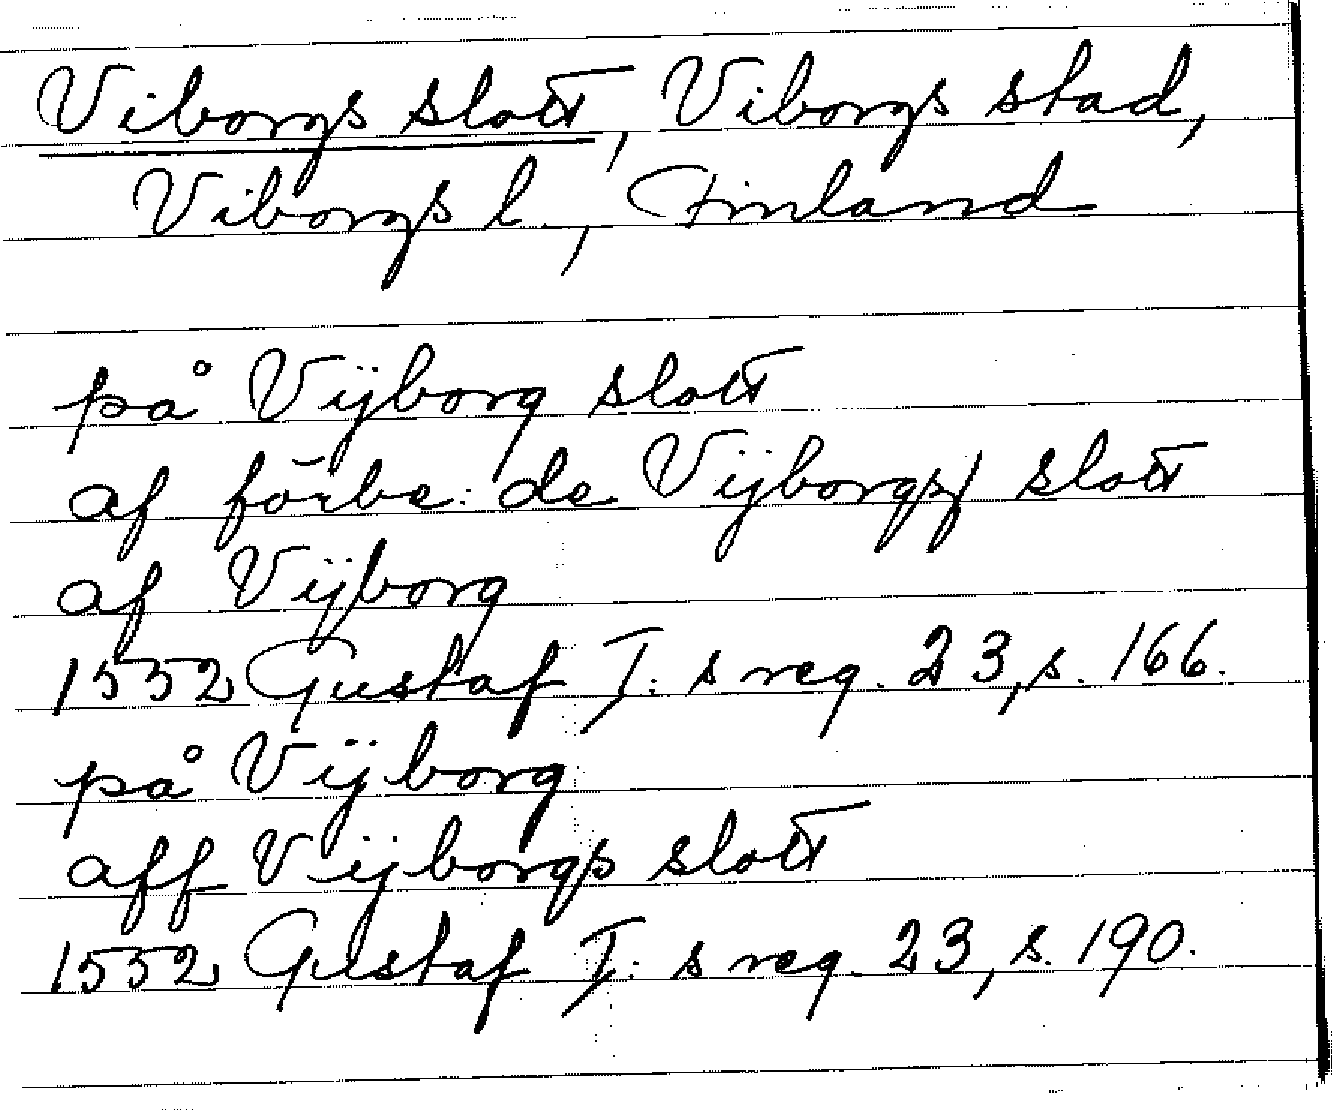 Viborgs slott, Viborgs stad,
Viborgs l., Finland
på Vijborg slott
af förbe: de Vijborgs slott
af Vijborg
1552 Gustaf I: s reg. 23, s. 166.
på Vijborg
aff Vijborgs slott
1552 Gustaf I: s reg. 23, s. 190.